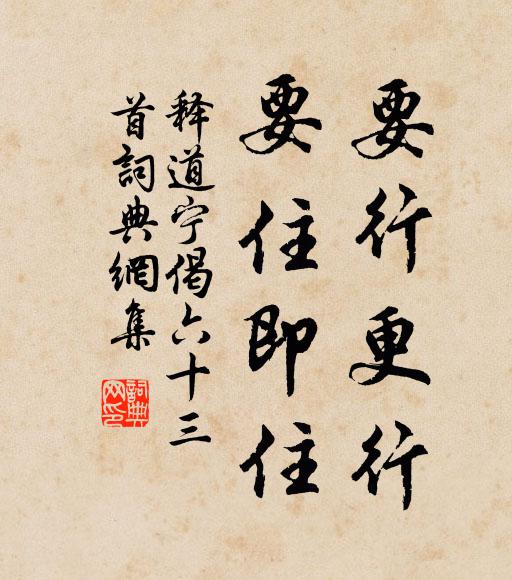 要行更行
要住即住
释道宁偈六十三
首詞典網集
詞典
网印